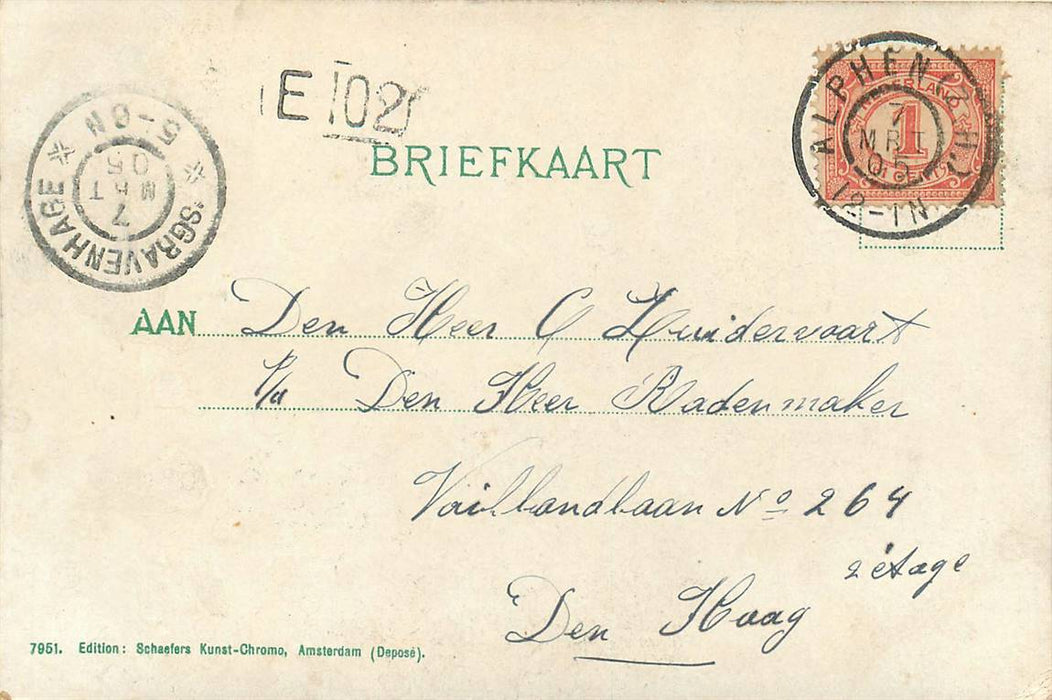 E 102
BRIEFKAART
'SGRAVENHAGE
7
MRT
05
5-6N
ALPHEN (Z.H.)
7
MRT
05
12-1N
NEDERLAND
1
CENT
AAN Den Heer C Zuidervaart
p/a Den Heer Radenmaker
Vaillandlaan No 264
2 étage
Den Haag
7951. Edition: Schaefers Kunst-Chromo, Amsterdam (Deposé).